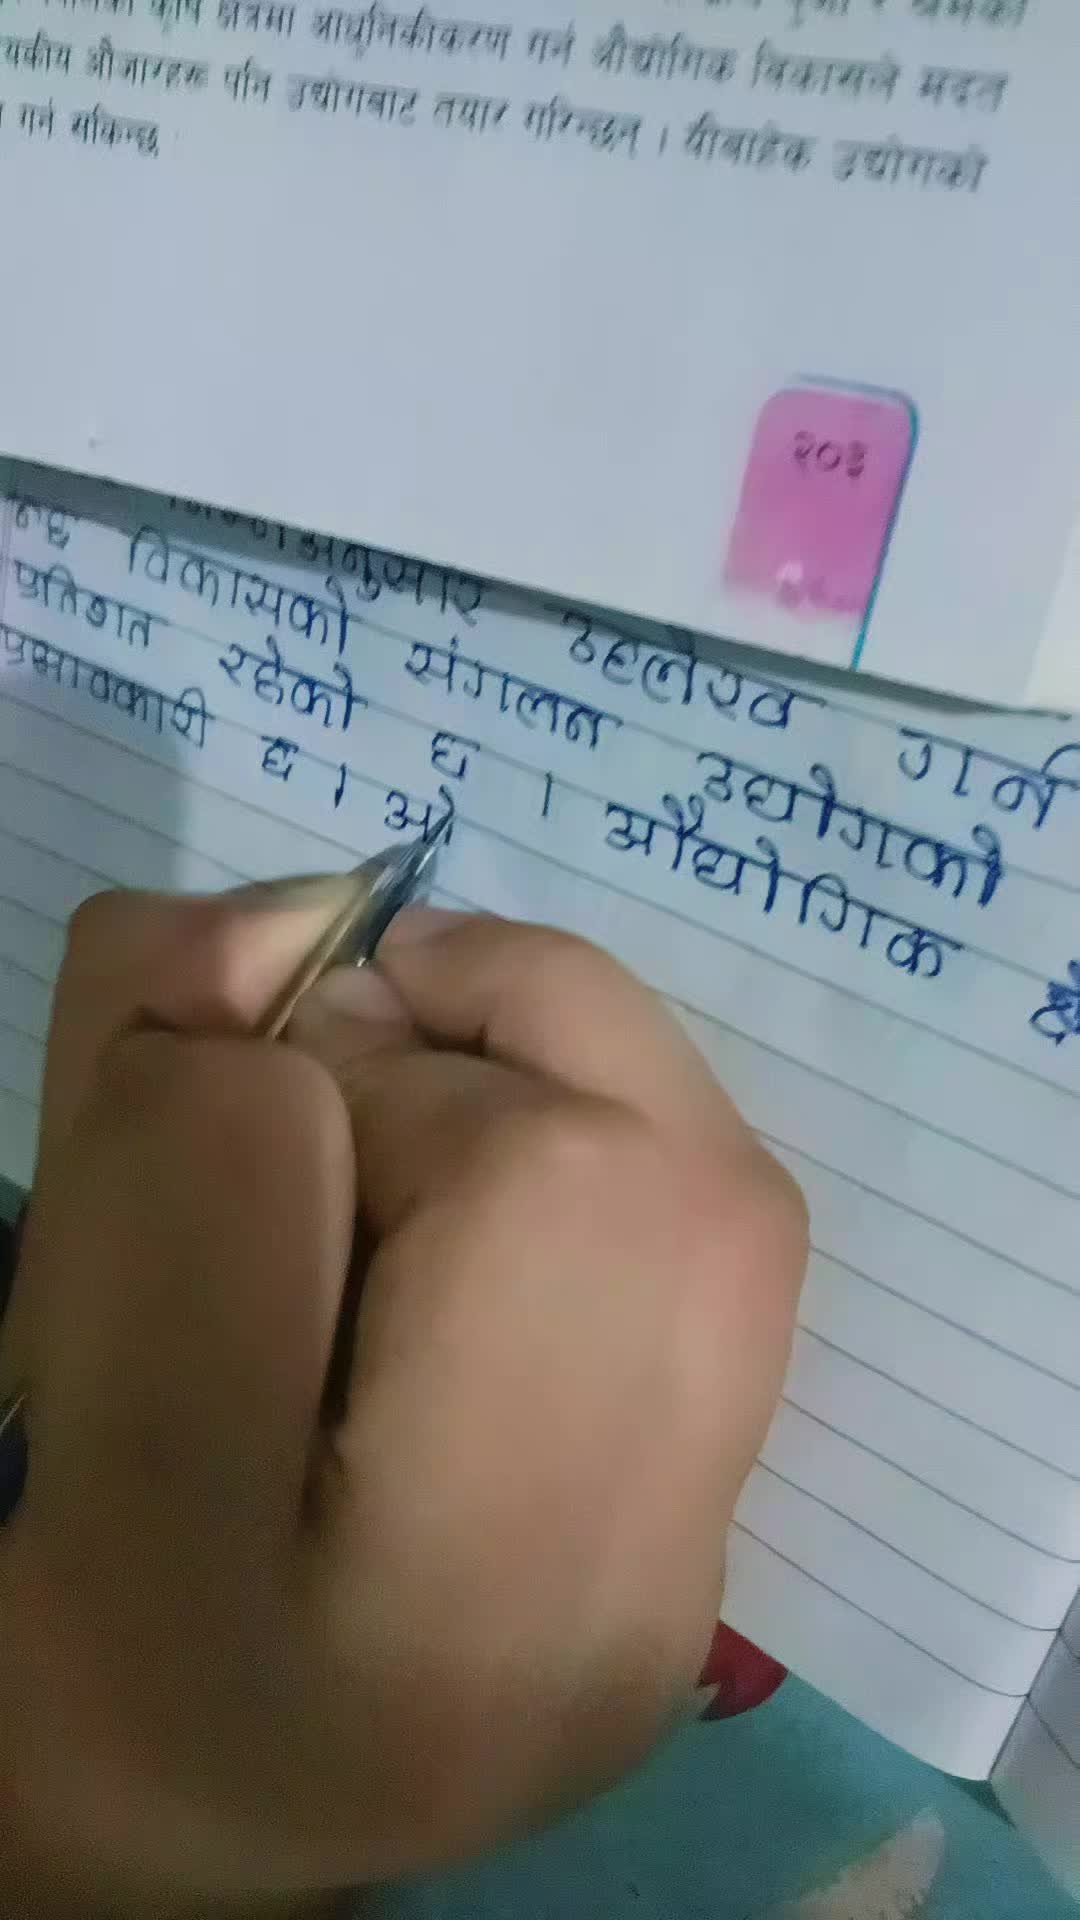 कृषि क्षेत्रमा आधुनिकीकरण गर्न औद्योगिक विकासले मदत
औजारहरू पनि उद्योगबाट तयार गरिन्छन् । यीबाहेक उद्योगको
गर्न सकिन्छ
२०३
अनुसार उल्लेख गर्न
विकासको संगलन उद्योगको
प्रतिशत रहेको छ । औद्योगिक क्षे
प्रभावकारी छ । औ